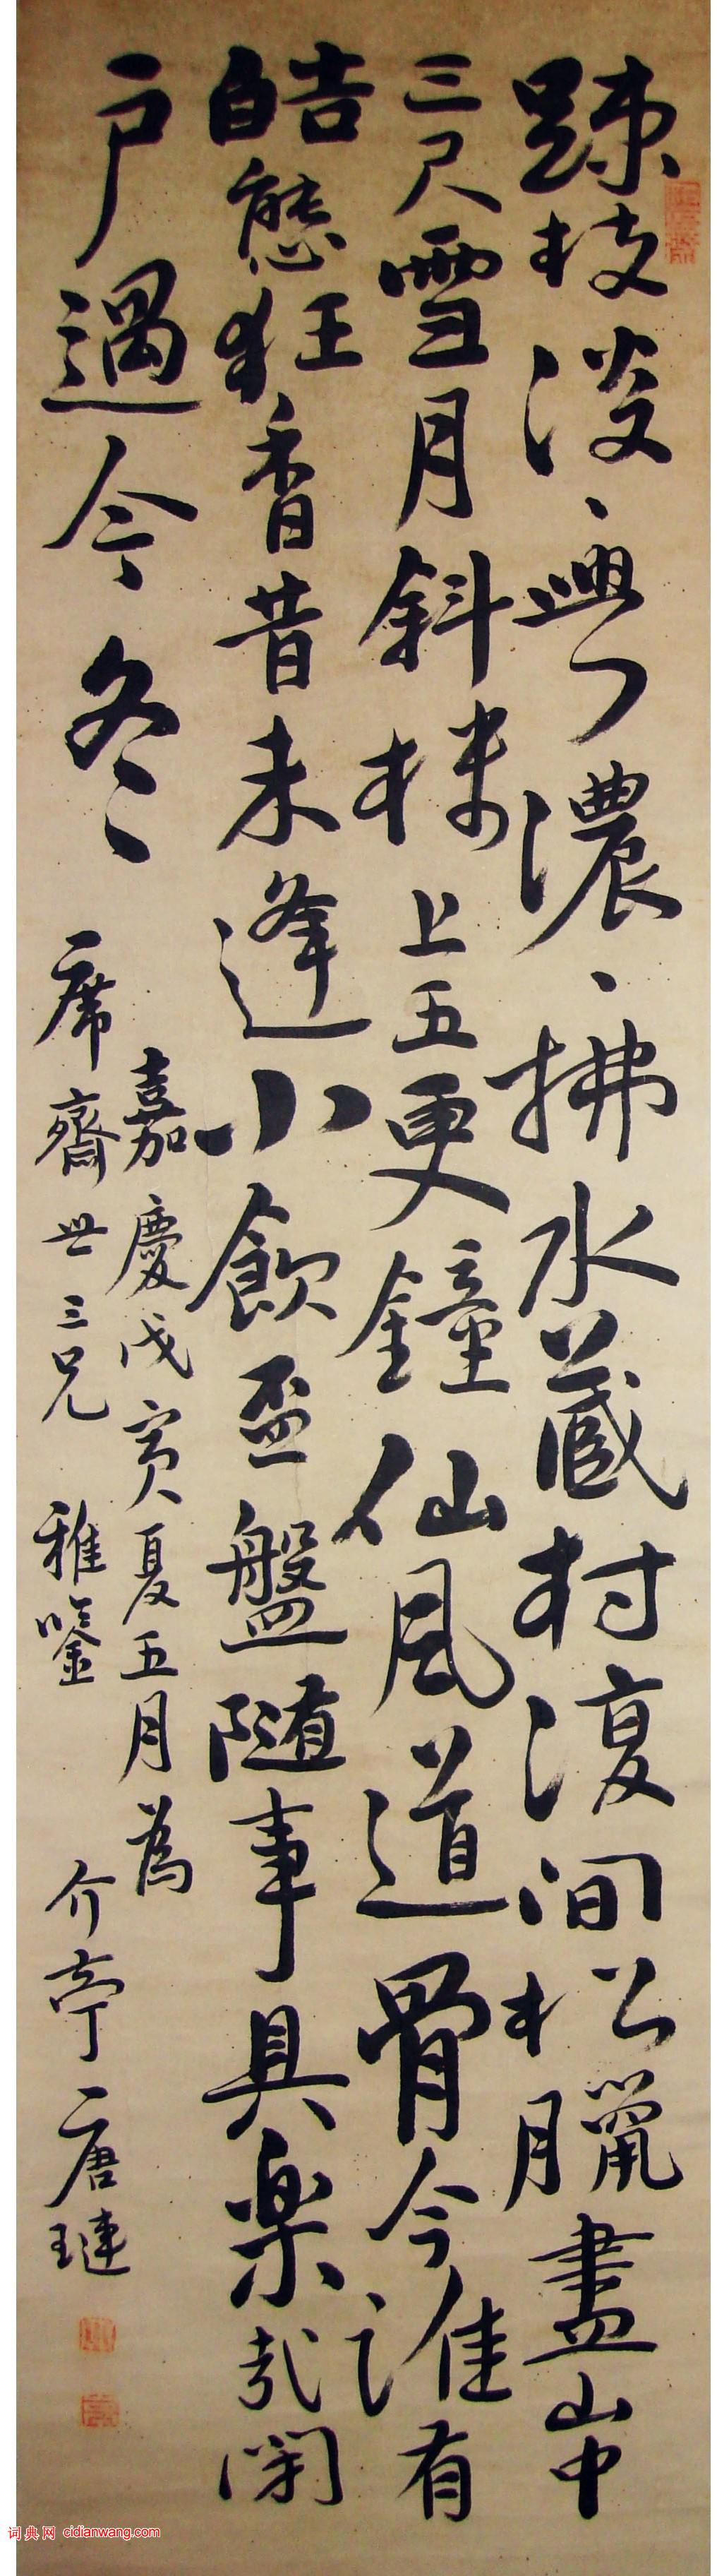 疎枝淡、興濃、拂水蔵村復間松臘盡山中
三尺雪月斜楼上五更鐘仙風道骨今誰有
皓態狂香昔未逢小飲盃盤随事具楽哉閑
戸過今冬
嘉慶戊寅夏五月為
席齋世三兄 雅鑒 介亭唐璉
词典网 cidianwang.com